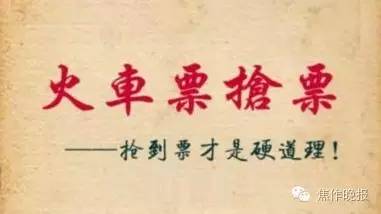 火車票搶票
——抢到票才是硬道理！
焦作晚报